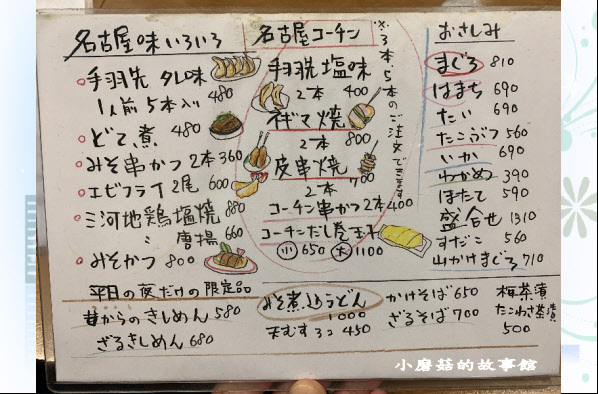 名古屋味いろいろ
手羽先 タレ味
1人前 5本入り 480
どて煮 480
みそ串かつ 2本 360
エビフライ 2尾 600
三河地鶏塩焼 880
〃 唐揚 660
みそかつ 800
平日の夜だけの限定品
昔からのきしめん 580
ざるきしめん 680
名古屋コーチン
手羽先塩味
2本 400
ネギマ焼
2本 800
皮串焼
2本 700
コーチン串かつ 2本 400
コーチンだし巻玉子
小 650 大 1100
※3本、5本のご注文できます
おさしみ
まぐろ 810
はまち 690
たい 690
たこぶつ 560
いか 690
わかめ 390
ほたて 590
盛合せ 1310
すだこ 560
山かけまぐろ 710
みそ煮込うどん
1000
天むす3コ 450
かけそば 650
ざるそば 700
梅茶漬
たこわさ茶漬
500
小磨菇的故事館